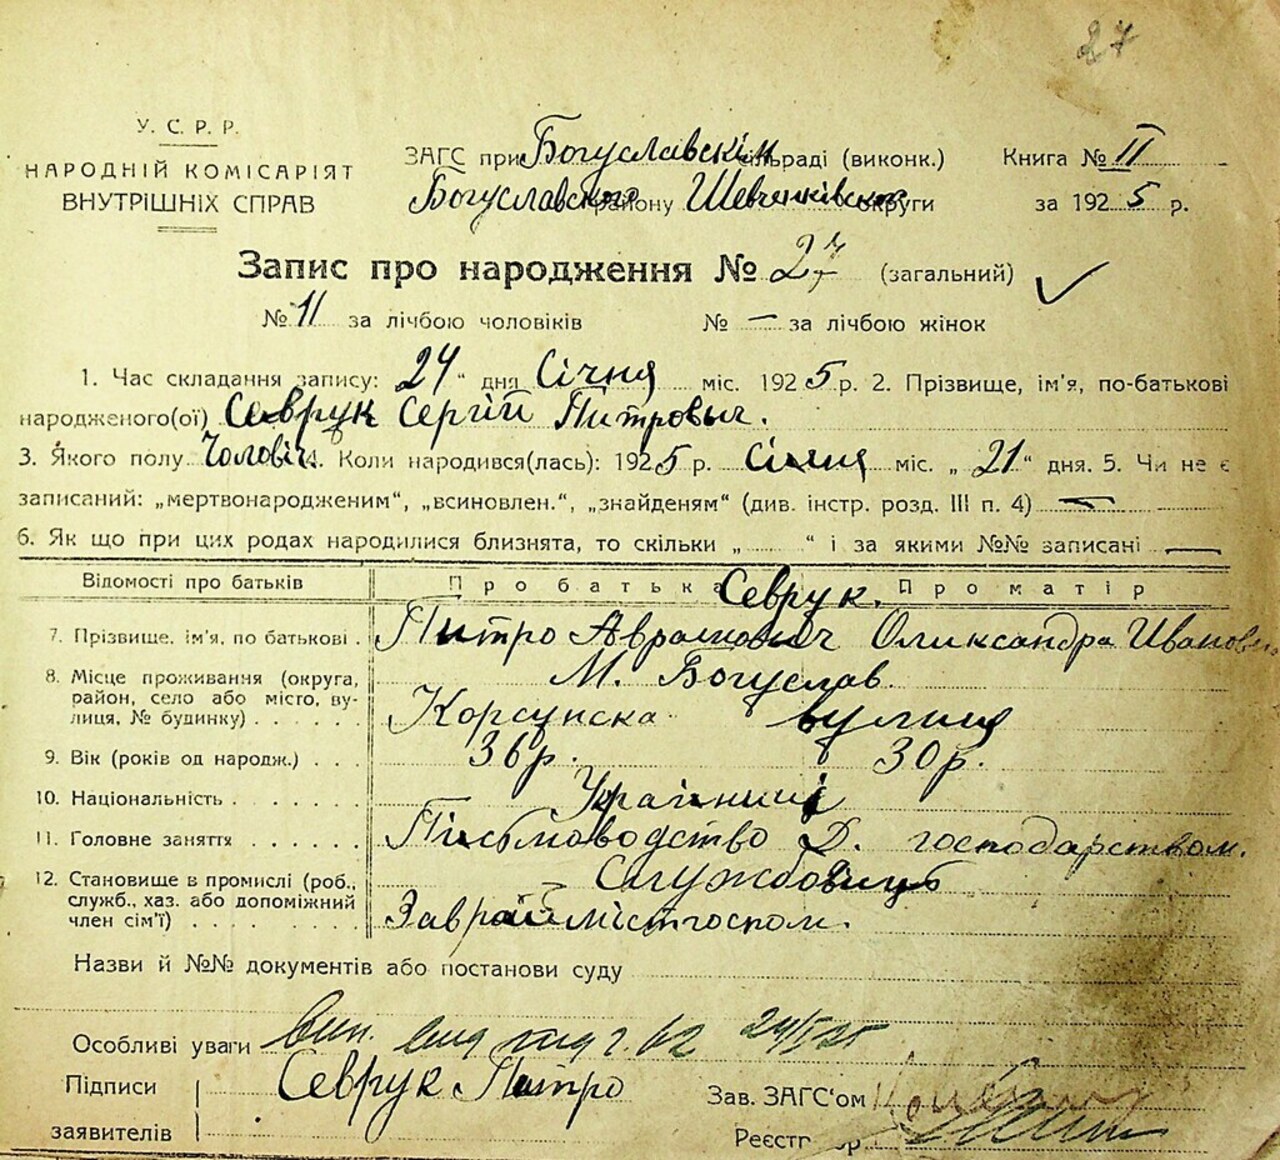 27
У. С. Р. Р.
НАРОДНІЙ КОМІСАРІЯТ
ВНУТРІШНІХ СПРАВ
ЗАГС при Богуславскім сільраді (виконк.) Книга № II
Богуславского району Шевченківської округи за 1925 р.
Запис про народження № 27 (загальний)
№ 11 за лічбою чоловіків № — за лічбою жінок
1. Час складання запису: 24 " дня Січня міс. 1925 р. 2. Прізвище, ім'я, по-батькові
народженого(ої) Севрук Сергій Питровыч.
3. Якого полу Чоловіч. 4. Коли народився(лась): 1925 р. Січня міс. „ 21 " дня. 5. Чи не є
записаний: „мертвонародженим", „всиновлен.", „знайденям" (див. інстр. розд. III п. 4) —
6. Як що при цих родах народилися близнята, то скільки „ " і за якими №№ записані —
Відомості про батьків Про батька Про матір
Севрук.
7. Прізвище, ім'я, по батькові . Питро Аврамович Олександра Ивановна
8. Місце проживання (округа, район, село або місто, вулиця, № будинку) . . . . . М. Богуслав.
Корсунска вулиця
9. Вік (років од народж.) . . . 36 р. 30 р.
10. Національність . . . . . . . Українці
11. Головне заняття . . . . . . Письмоводство Д. господарством.
12. Становище в промислі (роб., служб., хаз. або допоміжний член сім'ї) . . . . . . . . Службовиць
Заврайместгоспом.
Назви й №№ документів або постанови суду
Особливі уваги вип. 24/I/25
Підписи Севрук Питро Зав. ЗАГС'ом
заявителів Реєстр р.